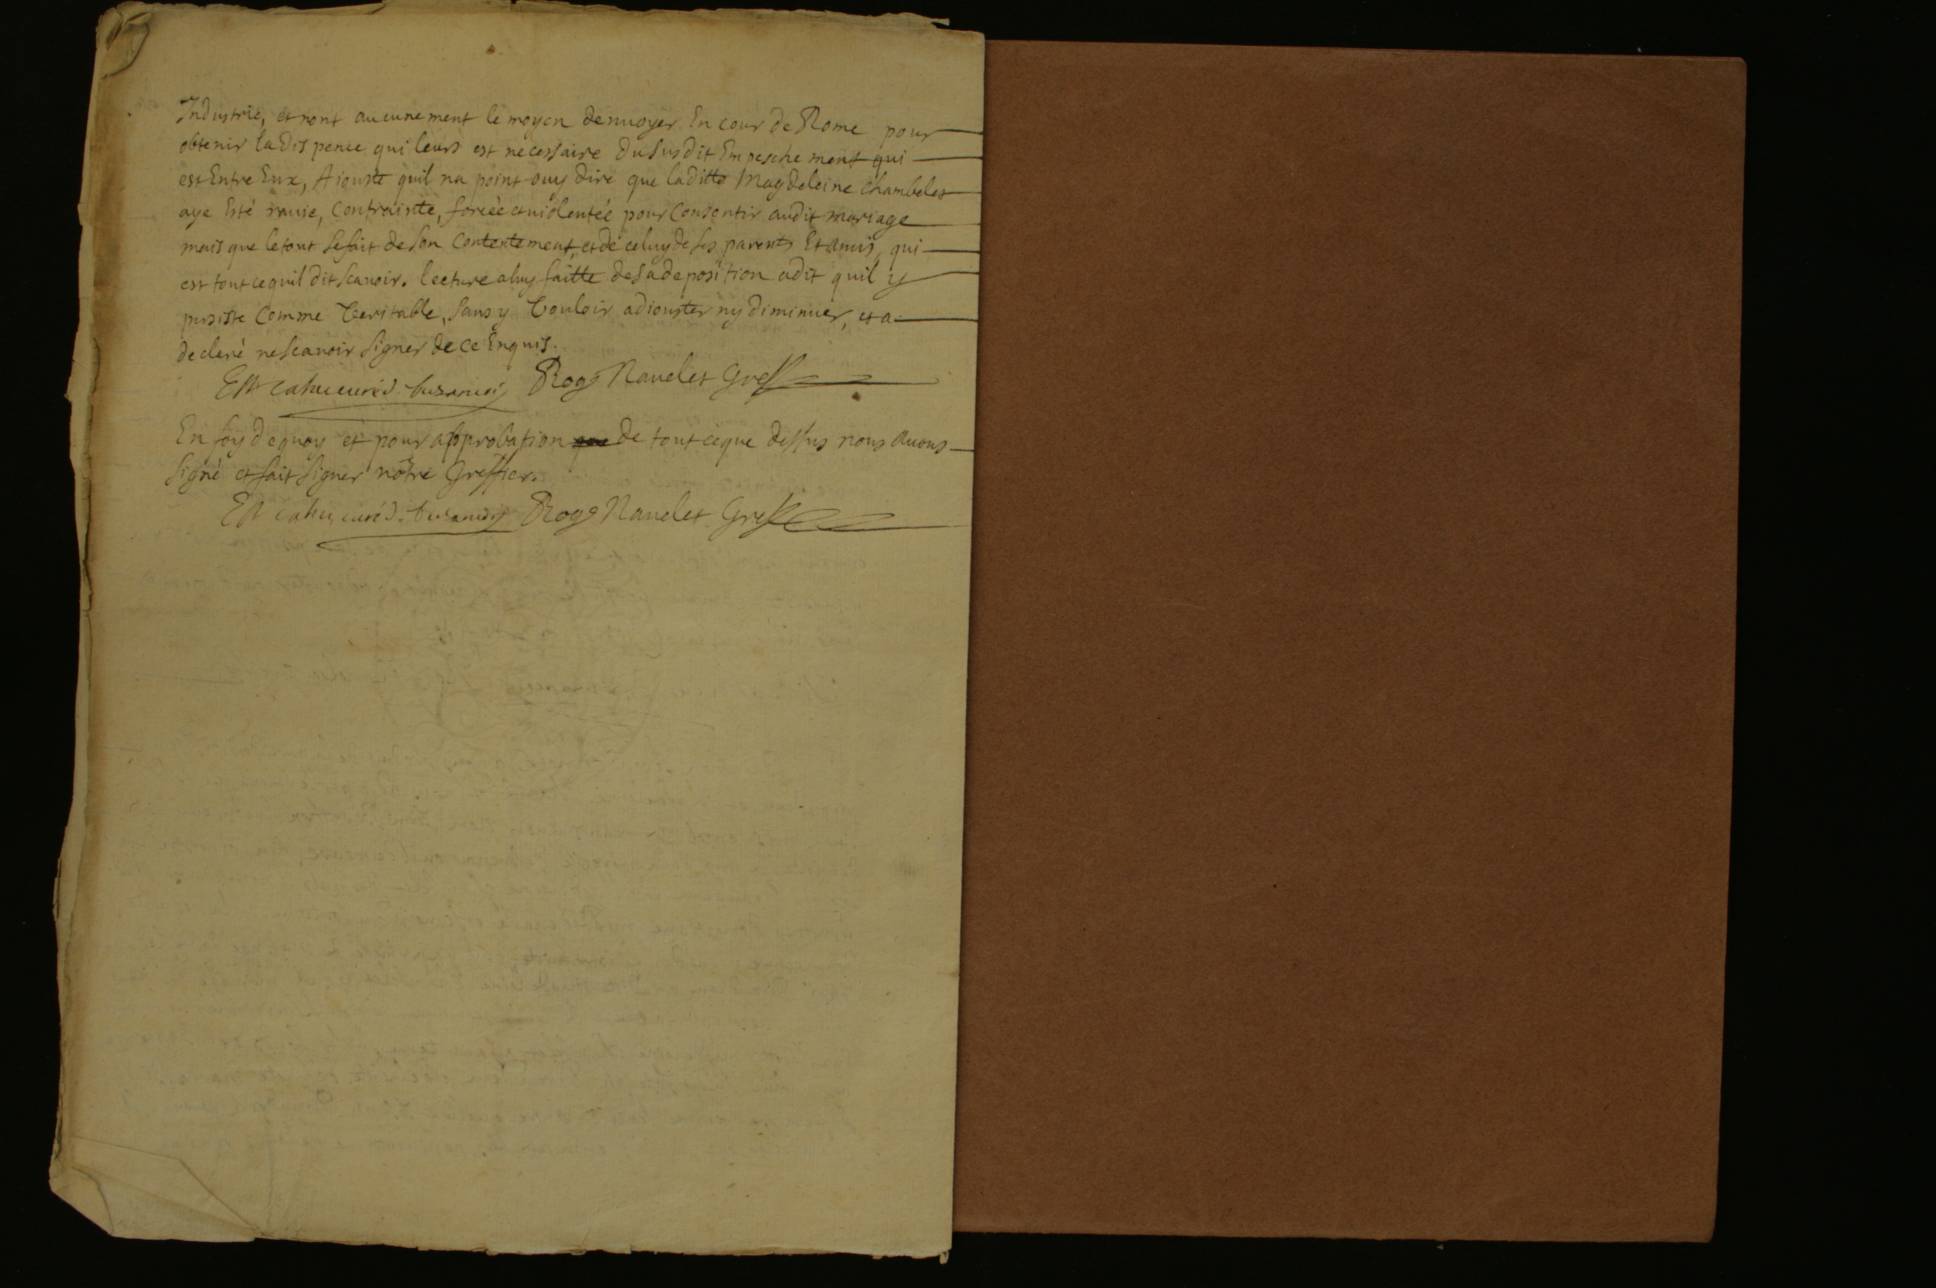 Industrie, et nont aucunement le moyen denuoyer En cour de Rome pour
obtenir La Dispence qui leurs est necessaire du susdit Empeschement qui
est Entre Eux, Aiouste quil na point ouy dire que laditte Magdeleine Chambelet
aye Esté rauie, Contrainte, forcée et uiolentée pour Consentir audit mariage
mais que letout se fait de son Contentement, et de celuy de ses parents Et amis, qui
est tout cequil dit scauoir. lecture aluy faitte de sa deposition adit quil y
persiste Comme Veritable, sans y Vouloir adiouster ny diminuer, et a
decleré nescauoir signer de ce Enquis.
Est cahu curé d. Rog Nauelet Greff
En foy dequoy et pour approbation de tout ceque dessus nous auons
signé et fait signer nôtre Greffier.
Est cahu, curé d. Rog Nauelet Greff